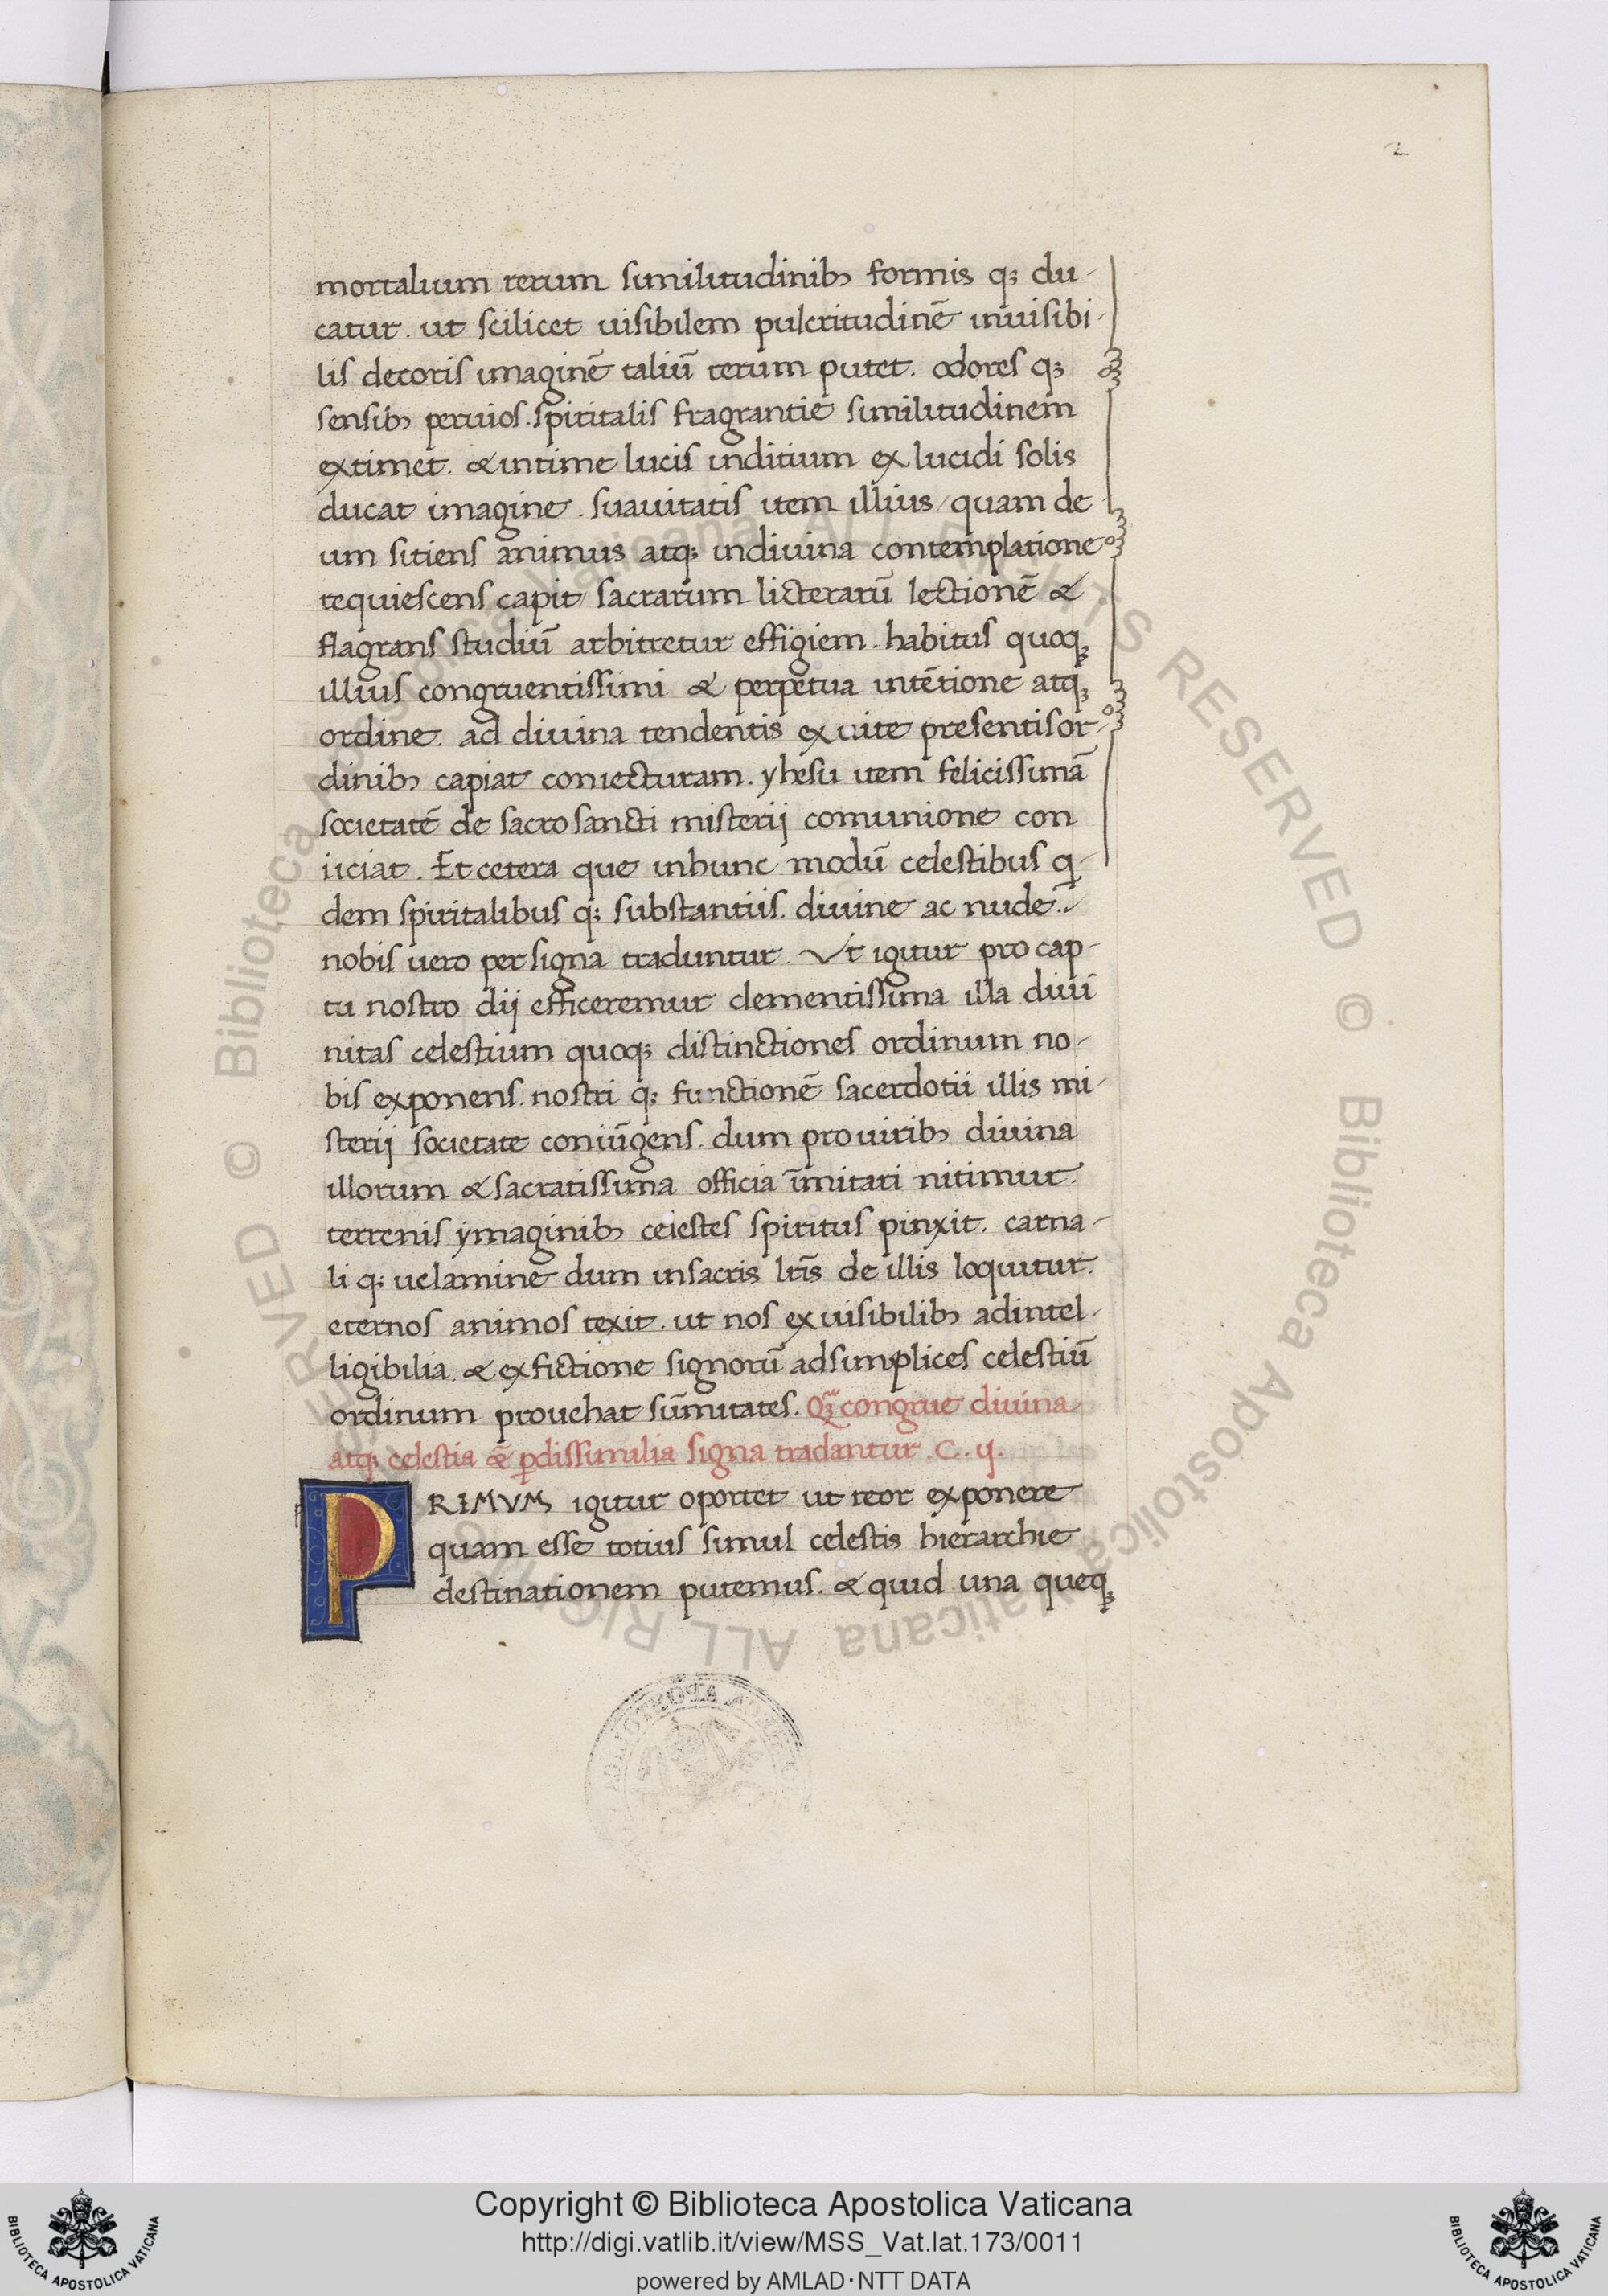 2
mortalium rerum similitudinibꝫ formis qꝫ du-
catur. ut scilicet uisibilem pulcritudinē inuisibi-
lis decoris imaginē taliū rerum putet. odores qꝫ
sensibꝫ peruios. spiritalis fragrantie similitudinem
extimet. & intime lucis inditium ex lucidi solis
ducat imagine. suauitatis item illius / quam de
um sitiens animus atqꝫ indiuina contemplatione
requiescens capit / sacrarum licterarū lectionē &
flagrans studiū arbitretur effigiem. habitus quoqꝫ
illius congruentissimi & perpetua intētione atqꝫ
ordine. ad diuina tendentis ex uite presentis or-
dinibꝫ capiat coniecturam. yhesu item felicissimā
societatē de sacro sancti misterij comunione con
iiciat. Et cetera que inhunc modū celestibus q-
dem spiritalibus qꝫ substantiis. diuine ac nude.
nobis uero per signa traduntur. Vt igitur pro cap-
tu nostro dij efficeremur clementissima illa diui
nitas celestium quoqꝫ distinctiones ordinum no-
bis exponens. nostri qꝫ functionē sacerdotii illis mi-
sterij societate coniūgens. dum pro uiribꝫ diuina
illorum & sacratissima officia īmitari nitimur.
terrenis ymaginibꝫ celestes spiritus pinxit. carna-
li qꝫ uelamine dum insacris lr̄is de illis loquitur.
eternos animos texit. ut nos ex uisibilibꝫ adintel-
ligibilia. & ex fictione signorū adsimplices celestiū
ordinum prouehat sūmitates. Qꝫ congrue diuina
atqꝫ celestia & ꝑdissimilia signa tradantur. C. ij.
PRIMVM igitur oportet ut reor exponere
quam esse totius simul celestis hierarchie
destinationem putemus. & quid una queqꝫ
© Biblioteca Apostolica Vaticana ALL RIGHTS RESERVED © Biblioteca Apostolica Vaticana ALL RIGHTS RESERVED
Copyright © Biblioteca Apostolica Vaticana
http://digi.vatlib.it/view/MSS_Vat.lat.173/0011
powered by AMLAD·NTT DATA
BIBLIOTECA APOSTOLICA VATICANA
BIBLIOTECA APOSTOLICA VATICANA